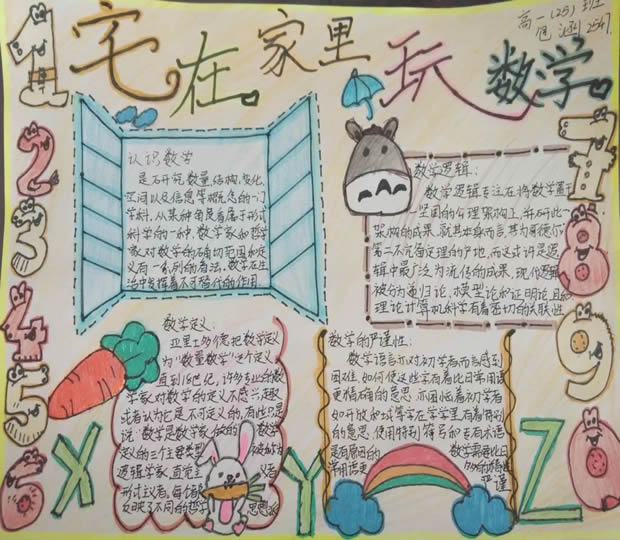 宅在家里玩数学
高一(25)班
1
2
3
4
5
6
7
8
9
0
认识数学
是研究数量、结构、变化、
空间以及信息等概念的一门
学科,从某种角度看属于形式
科学的一种,数学家和哲学
家对数学的确切范围和定
义有一系列的看法,数学在生
活中发挥着不可替代的作用
数学逻辑:
数学逻辑专注在将数学置于
坚固的公理架构上,并研究此一
架构的成果,就其本身而言,其为哥德尔
第二不完备定理的产地,而这或许是逻
辑中最广泛为流传的成果,现代逻辑
被分为递归论、模型论和证明论,且和
理论计算机科学有着密切的关联性
数学定义:
亚里士多德把数学定义
为"数量数学"这个定义
直到18世纪,许多专业的数
学家对数学的定义不感兴趣
或者认为它是不可定义的,有些只是
说:数学是数学家做的
定义的三个主要类型 被称为
逻辑学家,直觉主 义者
形式主义者,每个都
反映了不同的哲学 思想
数学的严谨性:
数学语言亦对初学者而言感到
困难,如何使这些字有着比日常用语
更精确的意思,亦困恼着初学者
如开放和域等字在数学里有着特别
的意思,使用特别符号和专有术语
是有原因的 数学需要比日
常用语更 多的精确
严谨
X
Y
Z